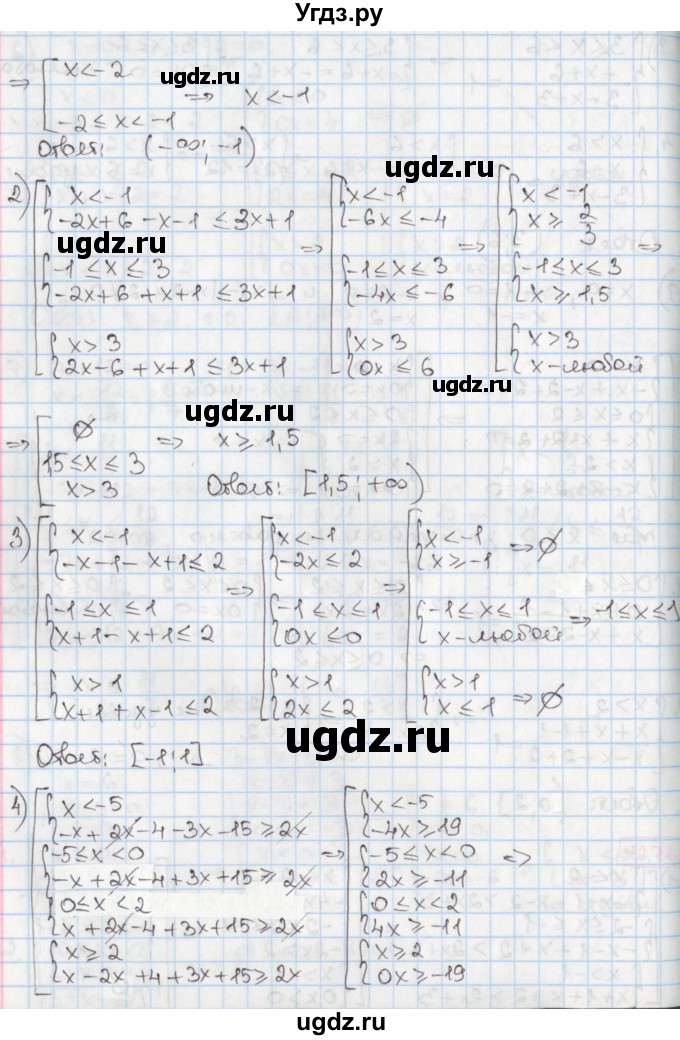 Угдз.ру
⇒ [ x<-2
ugdz.ru
⇒ x<-1
-2≤x<-1
Ответ: (-∞; -1)
ugdz.ru
ugdz.ru
2) [ { x<-1
-2x+6-x-1≤3x+1
{ -1≤x≤3
-2x+6+x+1≤3x+1
{ x>3
2x-6+x+1≤3x+1
⇒ [ { x<-1
-6x≤-4
{ -1≤x≤3
-4x≤-6
{ x>3
0x≤6
⇒ [ { x<-1
x≥2/3
{ -1≤x≤3
x≥1,5
{ x>3
x-любой
⇒
ugdz.ru
ugdz.ru
ugdz.ru
⇒ [ ∅
1,5≤x≤3
x>3
⇒ x≥1,5
Ответ: [1,5; +∞)
ugdz.ru
3) [ { x<-1
-x-1-x+1≤2
{ -1≤x≤1
x+1-x+1≤2
{ x>1
x+1+x-1≤2
⇒ [ { x<-1
-2x≤2
{ -1≤x≤1
0x≤0
{ x>1
2x≤2
⇒ [ { x<-1
x≥-1 ⇒ ∅
{ -1≤x≤1
x-любой ⇒ -1≤x≤1
{ x>1
x≤1 ⇒ ∅
ugdz.ru
Ответ: [-1;1]
4) [ { x<-5
-x+2x-4-3x-15≥2x
{ -5≤x<0
-x+2x-4+3x+15≥2x
{ 0≤x<2
x+2x-4+3x+15≥2x
{ x≥2
x-2x+4+3x+15≥2x
⇒ [ { x<-5
-4x≥19
{ -5≤x<0
2x≥-11
{ 0≤x<2
4x≥-11
{ x≥2
0x≥-19
⇒
ugdz.ru
ugdz.ru